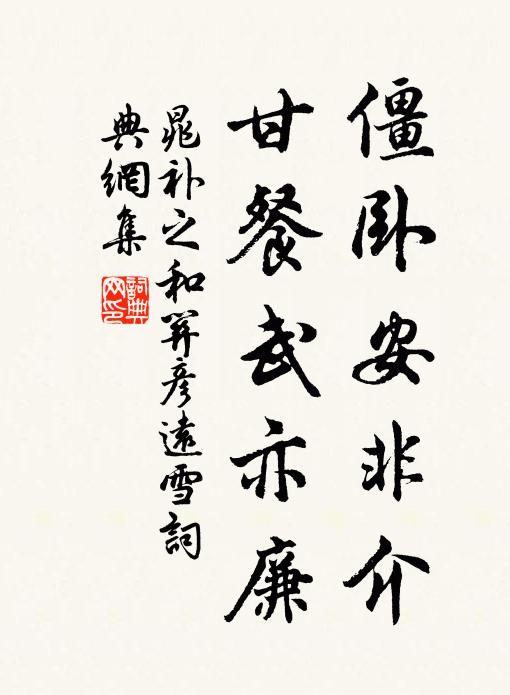 僵卧安非介
甘餐武亦廉
晁补之和羿彥遠雪詞
典網集
詞典網印